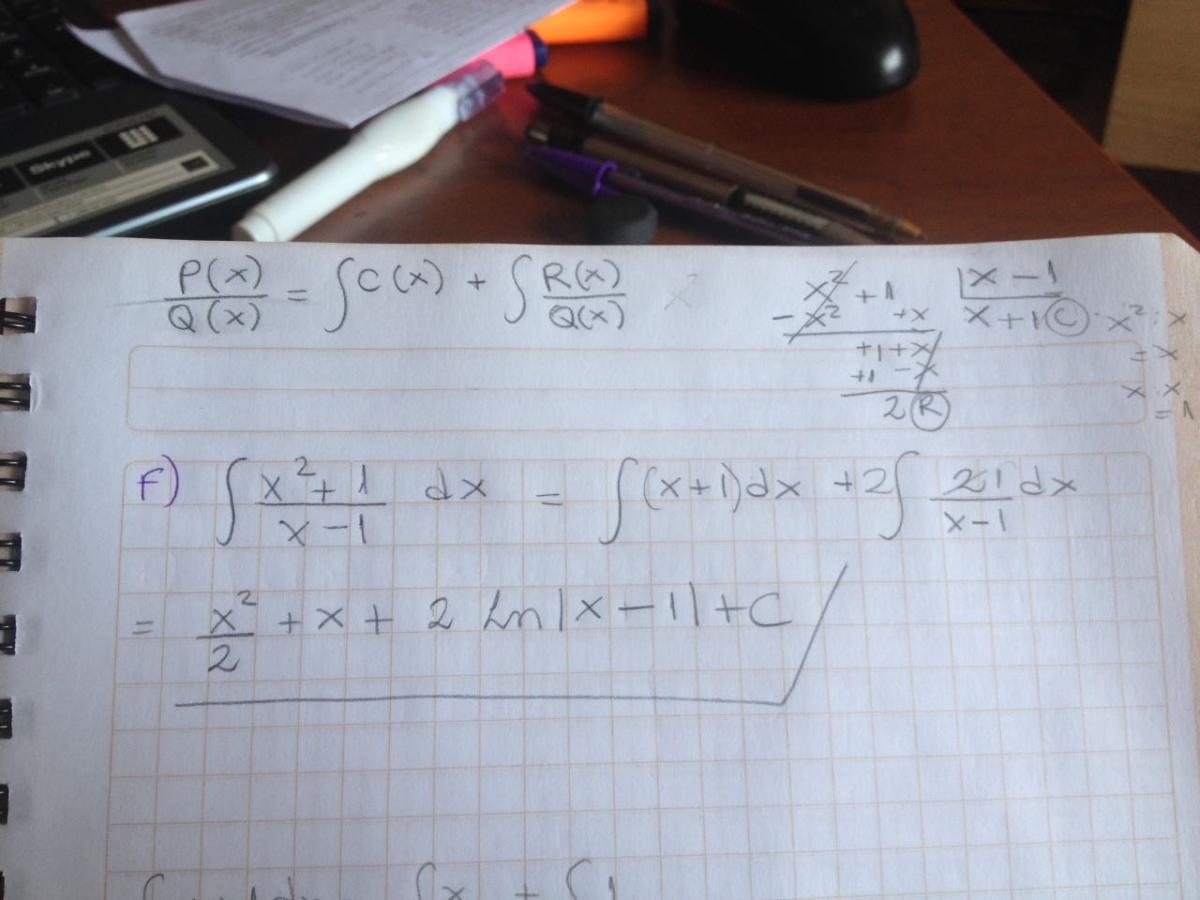 Skype
P(x)/Q(x) = ∫C(x) + ∫R(x)/Q(x)
x² + 1 |x - 1
- x² +x x + 1 (C) x² : x
+1 + x = x
+1 - x x : x
2 (R) = 1
F) ∫ (x² + 1)/(x - 1) dx = ∫(x+1)dx + 2∫ 21/(x-1) dx
= x²/2 + x + 2 Ln|x - 1| + C